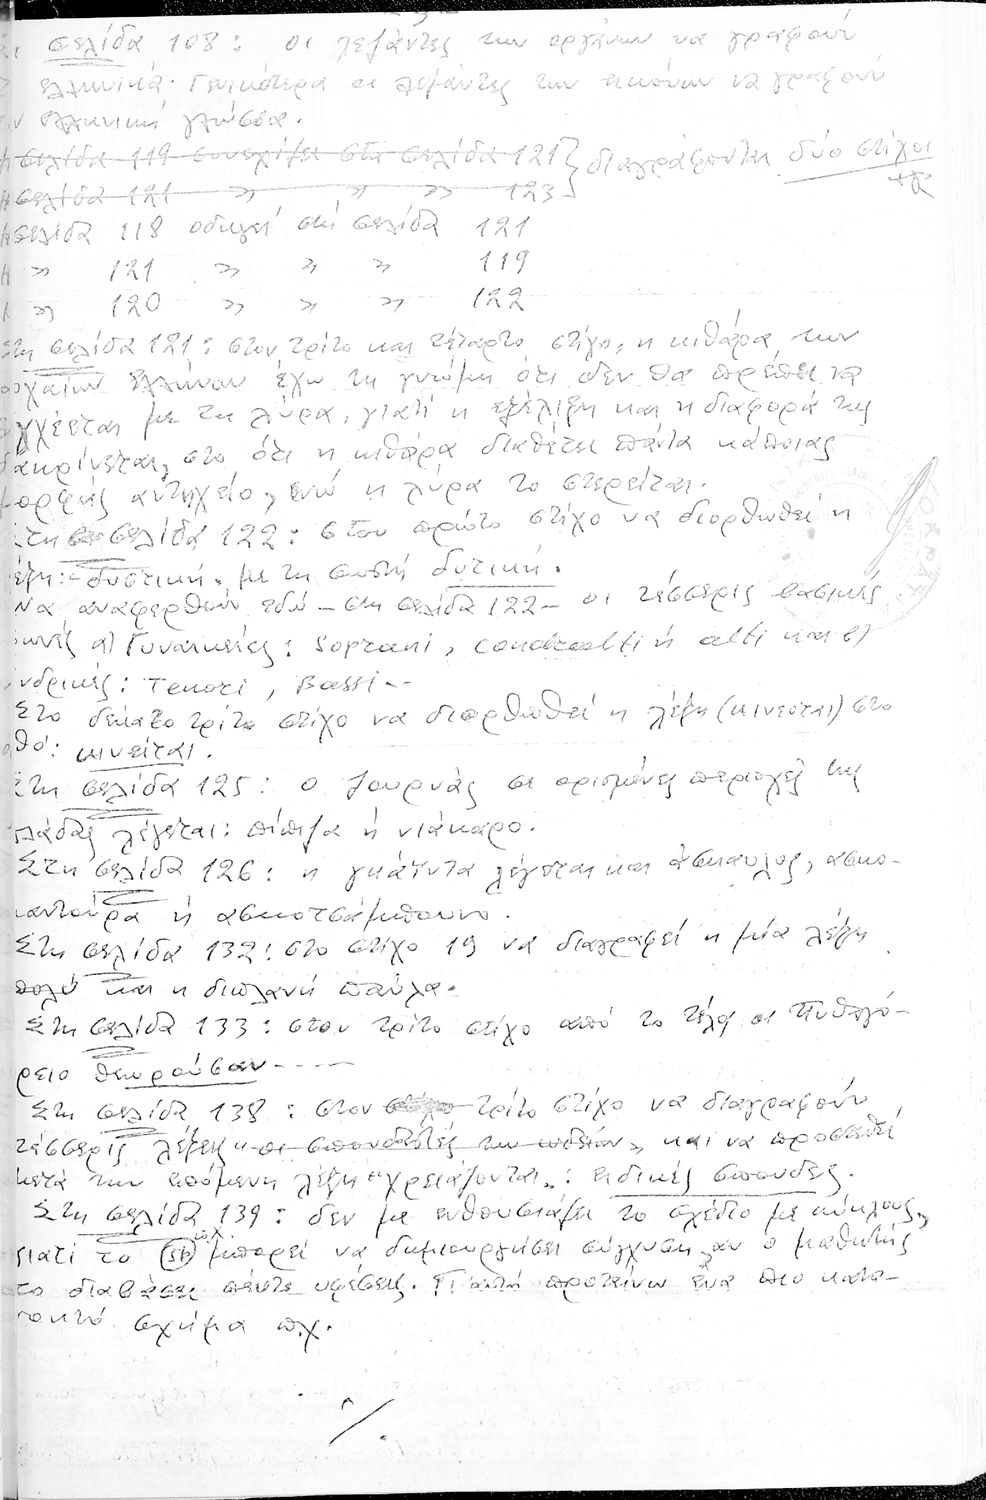 σελίδα 108: οι λεζάντες των οργάνων να γραφούν
ελληνικά. Γενικότερα οι λεζάντες των εικόνων να γραφούν
ελληνική γλώσσα.
Η σελίδα 119 συνεχίζει στη σελίδα 121 } διαγράφονται δύο στίχοι
Η σελίδα 121 » » » 123
Η σελίδα 118 οδηγεί στή σελίδα 121
Η » 121 » » » 119
Η » 120 » » » 122
Στη σελίδα 121: στον τρίτο και τέταρτο στίχο, η κιθάρα των
αρχαίων Ελλήνων έχω τη γνώμη ότι δεν θα πρέπει να
συγχέεται με τη λύρα, γιατί η εξέλιξη και η διαφορά της
διακρίνεται, στο ότι η κιθάρα διαθέτει πάντα κάποιας
μορφής αντηχείο, ενώ η λύρα το στερείται.
Στη σελίδα 122: στον πρώτο στίχο να διορθωθεί η
λέξη: "δυστική" με τη σωστή δυτική.
Να αναφερθούν εδώ - στη σελίδα 122 - οι τέσσερις βασικές
φωνές α) Γυναικείες: Soprani, contralti ή alti και β)
Ανδρικές: Tenori, Bassi--
Στο δέκατο τρίτο στίχο να διορθωθεί η λέξη (κινεσται) στο
ορθό: κινείται.
Στη σελίδα 125: ο ζουρνάς σε ορισμένες περιοχές της
Ελλάδας λέγεται: πίπιζα ή νιάκαρο.
Στη σελίδα 126: η γκάϊντα λέγεται και άσκαυλος, ασκο-
μαντούρα ή ασκοτσάμπουνο.
Στη σελίδα 132: στο στίχο 19 να διαγραφεί η μία λέξη
πολύ και η διπλανή παύλα.
Στη σελίδα 133: στον τρίτο στίχο από το τέλος οι Πυθαγό-
ρειο θεωρούσαν----
Στη σελίδα 138: στον τρίτο στίχο να διαγραφούν
τέσσερις λέξεις "οι σπουδαστές των ωδείων" και να προστεθεί
μετά την επόμενη λέξη "χρειάζονται": ειδικές σπουδες.
Στη σελίδα 139: δεν με ενθουσιάζει το σχέδιο με κύκλους,
γιατί το (5b) μπορεί να δημιουργήσει σύγχυση, αν ο μαθητής
το διαβάσει πέντε υφέσεις. Γι αυτό προτείνω ένα πιο κατα-
νοητό σχήμα π.χ.
./.